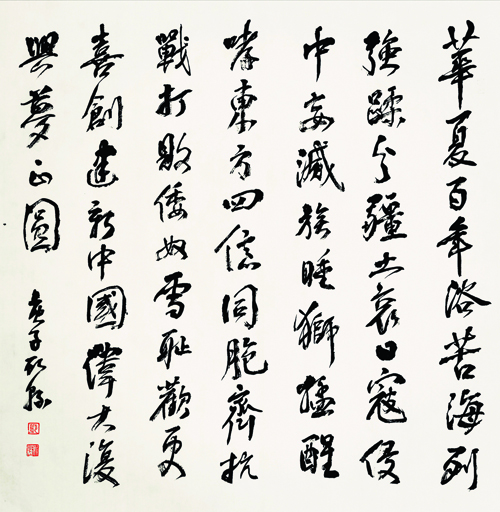 華夏百年浴苦海列
強蹂兮疆土哀日寇侵
中妄滅族睡獅猛醒
哮東方四億同胞齊抗
戰打敗倭奴雪恥歡更
喜創建新中國偉大復
興夢正圓